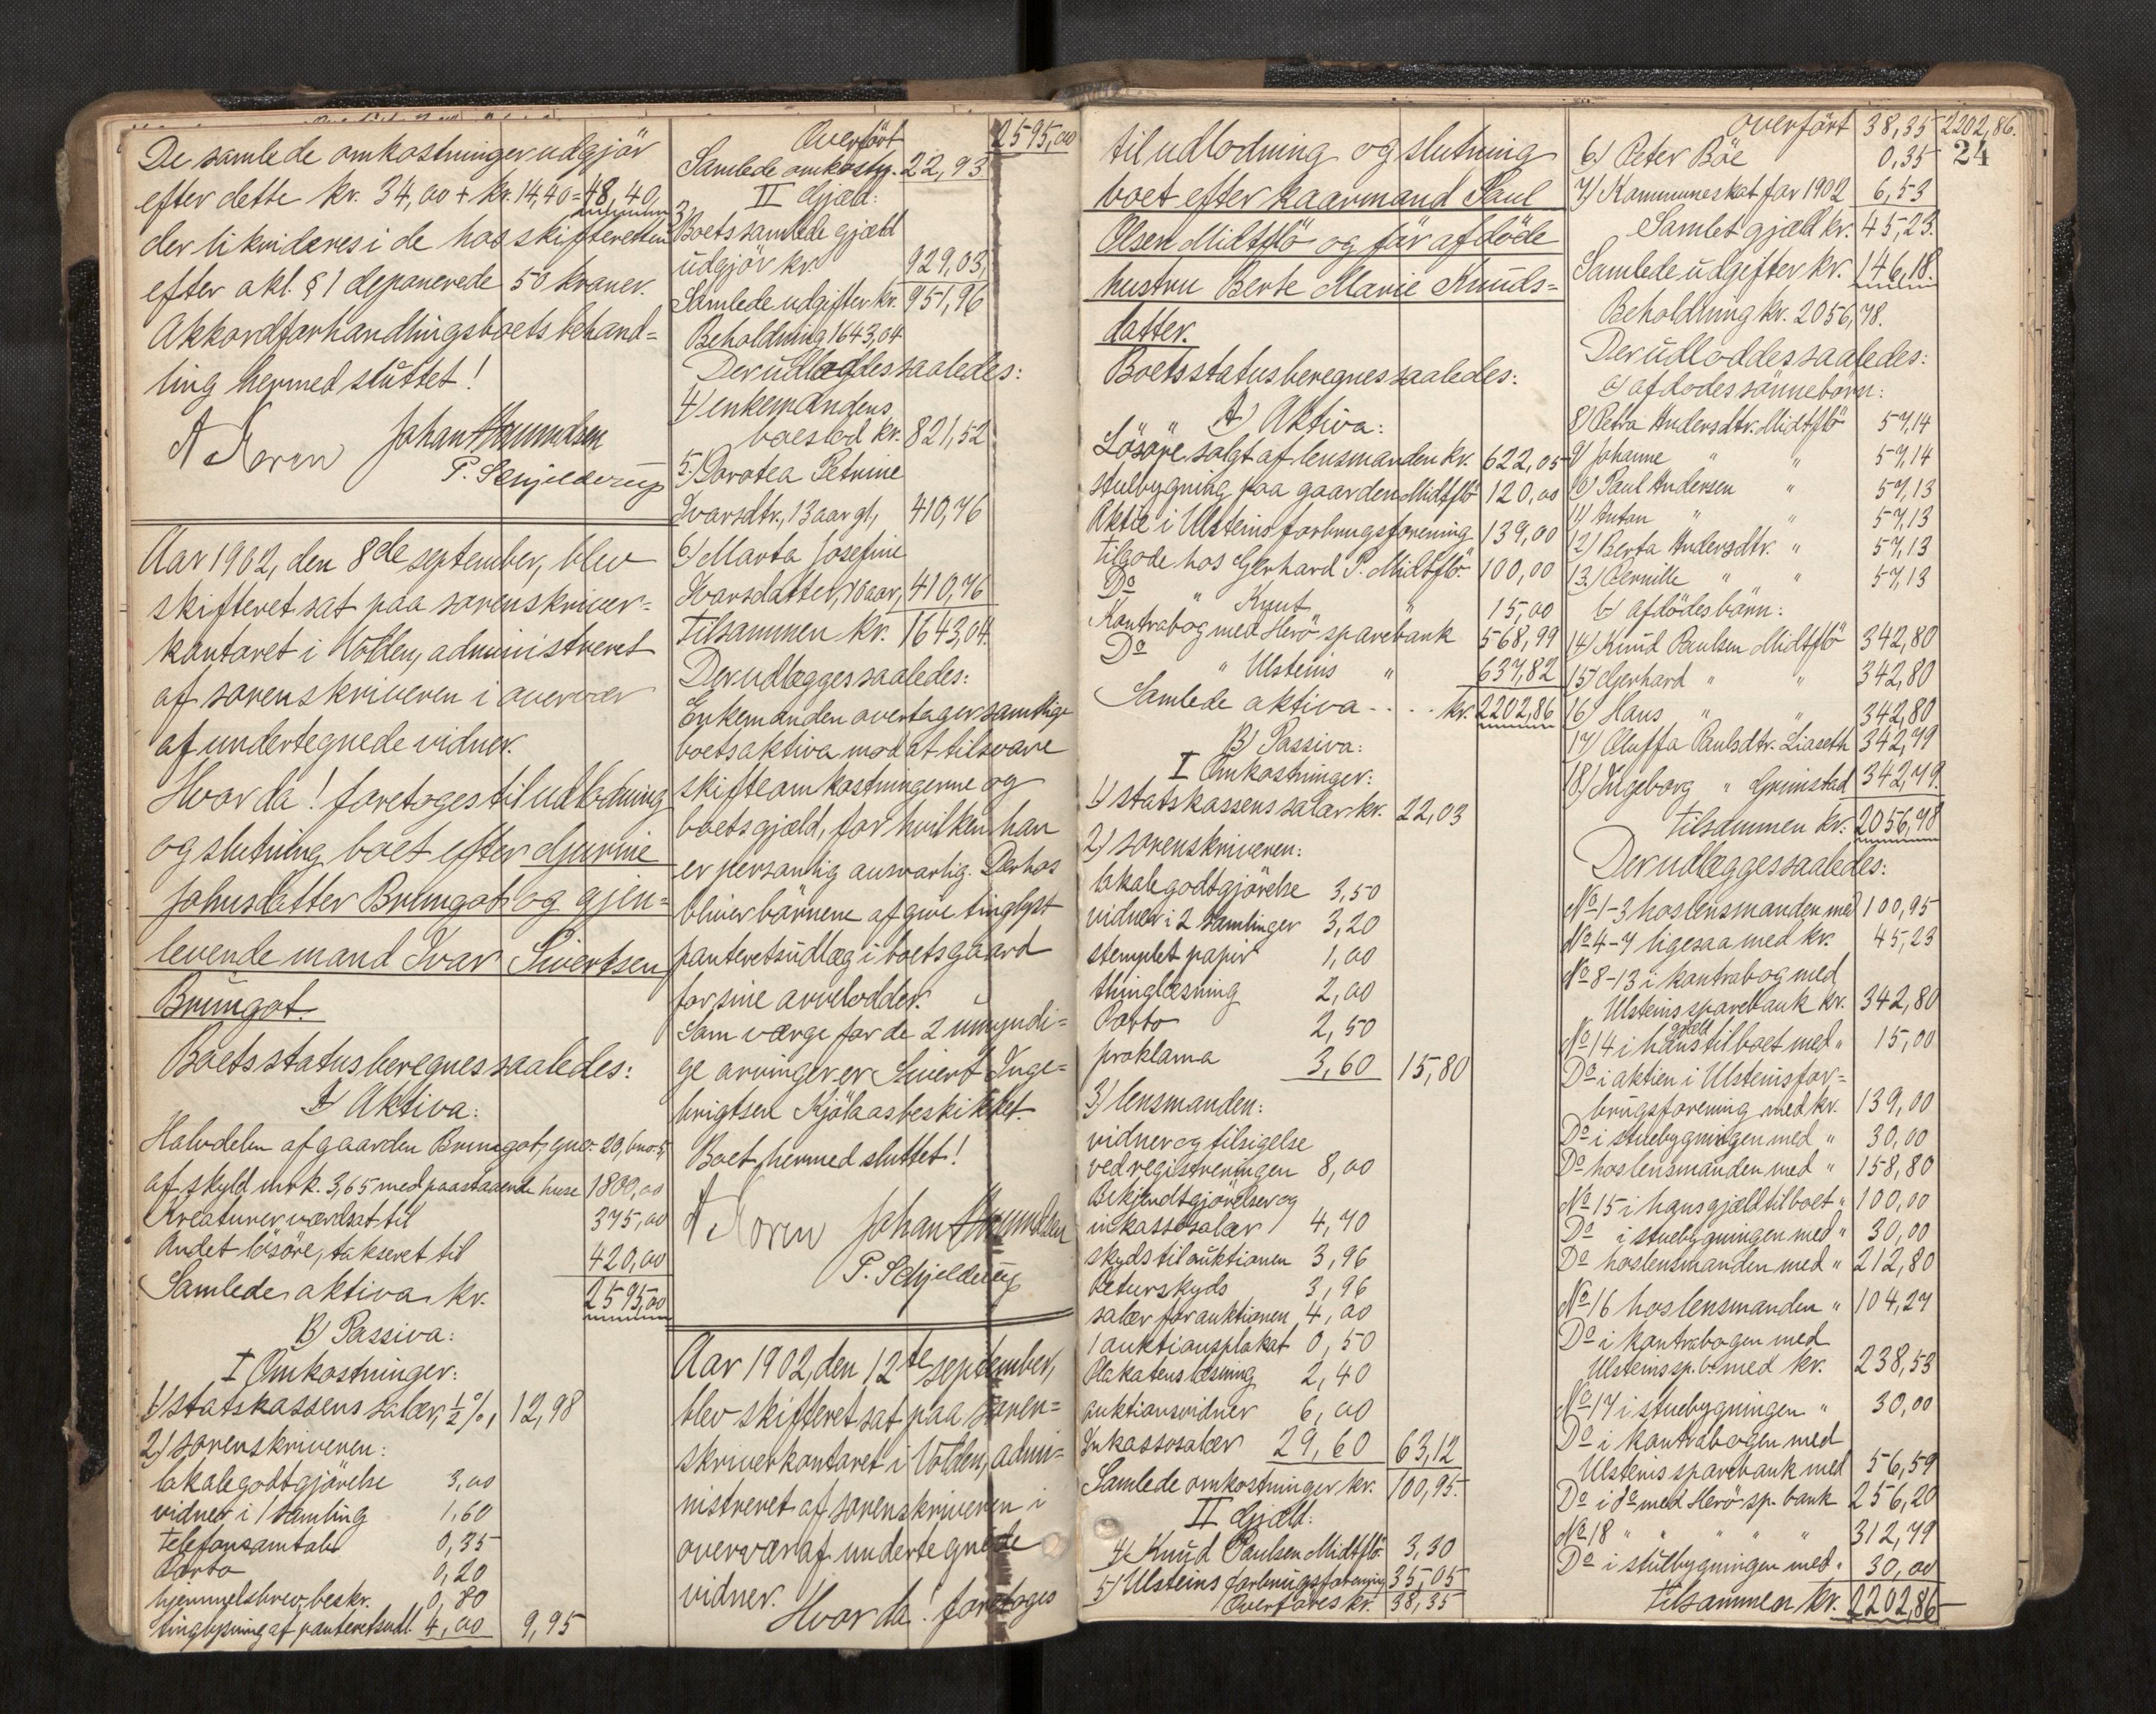 De samlede omkostninger udgjör
efter dette kr. 34,00 + kr. 14,40 = 48,40,
der likvideres i de hos skifteretten
efter akl. § 1 deponerede 50 kroner.
Akkordforhandlingsboets behand=
ling hermed sluttet!
Johan Amundsen
P. Schjelderup
Aar 1902, den 8de september, blev
skifteret sat paa sorenskriver=
kontoret i Volden, administreret
af sorenskriveren i overvær
af undertegnede vidner.
Hvor da! foretoges til udlodning
og slutning boet efter Gjurine
Johnsdatter Brungot og gjen=
levende mand Ivar Sivertsen
Brungot.
Boets status beregnes saaledes:
A) Aktiva:
Halvdelen af gaarden Brungot, gno. 20, bno. 5
af skyld mrk. 3,65 med paastaaende huse 1800,00
Kreaturer værdsat til 375,00
Andet lösöre, takseret til 420,00
Samlede aktiva kr. 2595,00
B) Passiva:
I Omkostninger:
1) statskassens salær, ½ %, 12,98
2) sorenskriveren:
lokalegodtgjörelse 3,00
vidner i 1 samling 1,60
telefonsamtale 0,35
Porto 0,20
hjemmelsbrev, beskr. 0,80
tinglysning af panteretsudl. 4,00 9,95
Overfört 2595,00
Samlede omkostn. 22,93
II Gjæld:
3) Boets samlede gjæld
udgjör kr. 929,03,
Samlede udgifter kr. 951,96
Beholdning 1643,04
Der udlægges saaledes:
4) enkemandens
boeslod kr. 821,52
5) Dorotea Petrine
Ivarsdtr., 13 aar gl., 410,76
6) Marta Josefine
Ivarsdatter, 10 aar, 410,76
tilsammen kr. 1643,04.
Der udlægges saaledes:
Enkemanden overtager samtlige
boets aktiva mod at tilsvare
skifteomkostningerne og
boets gjæld, for hvilken han
er personlig ansvarlig. Derhos
bliver börnene at give tinglyst
panteretsudlæg i boets gaard
for sine arvelodder.
Som værge for de 2 umyndi=
ge arvinger er Sivert Inge=
brigtsen Kjölaas beskikket.
Boet hermed sluttet!
Johan Amundsen
P. Schjelderup
Aar 1902, den 12te september,
blev skifteret sat paa soren=
skriverkontoret i Volden, admi=
nistreret af sorenskriveren i
overvær af undertegnede
vidner.
Hvor da! foretoges
til udlodning og slutning
boet efter kaarmand Paul
Olsen Midtflö og för afdöde
hustru Berte Marie Knuds=
datter.
Boets status beregnes saaledes:
A) Aktiva:
Lösöre solgt af lensmanden kr. 622,05
stuebygning paa gaarden Midtflö 120,00
Aktie i Ulsteins forbrugsforening 139,00
tilgode hos Gerhard P. Midtflö 100,00
Do " Knut " " 15,00
Kontrabog med Herö sparebank 568,99
Do " Ulsteins " 637,82
Samlede aktiva - . . . kr. 2202,86
B) Passiva:
I Omkostninger:
1) statskassens salær kr. 22,03
2) sorenskriveren:
lokalegodtgjörelse 3,50
vidner i 2 samlinger 3,20
stemplet papir 1,00
thinglæsning 2,00
Porto 2,50
proklama 3,60 15,80
3) lensmanden:
vidner og tilsigelse
ved registreringen 8,00
Bekjendtgjörelser og
inkassosalær 4,70
skyds til auktionen 3,96
Returskyds 3,96
salær for auktionen 4,00
1 auktionsplakat 0,50
Plakatens læsning 2,40
auktionsvidner 6,00
Inkassosalær 29,60 63,12
Samlede omkostninger kr. 100,95.
II Gjæld:
4) Knud Paulsen Midtflö 3,30
5) Ulsteins forbrugsforening 35,05
Overföres kr. 38,35
overfört 38,35 2202,86.
24
6) Peter Böe 0,35
7) Kommuneskat for 1902 6,53
Samlet gjæld kr. 45,23.
Samlede udgifter kr. 146,18.
Beholdning kr. 2056,78.
Der udloddes saaledes:
a) afdödes sönnebörn:
8) Petra Andersdtr. Midtflö 57,14
9) Johanne " " 57,14
10) Paul Andersen " 57,13
11) Anton " " 57,13
12) Berta Andersdtr. " 57,13
13) Pernille " " 57,13
b) afdödes börn:
14) Knud Paulsen Midtflö 342,80
15) Gerhard " " 342,80
16) Hans " " 342,80
17) Oluffa Paulsdtr. Liaseth 342,79
18) Ingeborg " Grimstad 342,79.
tilsammen kr. 2056,78
Der udlægges saaledes:
No 1-3 hos lensmanden med 100,95
No 4-7 ligesaa med kr. 45,23
No 8-13 i kontrabog med
Ulsteins sparebank kr. 342,80
No 14 i hans gjæld til boet med " 15,00
Do i aktien i Ulsteins for=
brugsforening med kr. 139,00
Do i stuebygningen med " 30,00
Do hos lensmanden med " 158,80
No 15 i hans gjæld til boet " 100,00
Do i stuebygningen med " 30,00
Do hos lensmanden med " 212,80
No 16 hos lensmanden " 104,27
Do i kontrabogen med
Ulsteins sp.b. med kr. 238,53
No 17 i stuebygningen " 30,00
Do i kontrabogen med
Ulsteins sparebank med 56,59
Do i do med Herö sp. bank 256,20
No 18 " " " " " 312,79
Do i stuebygningen med " 30,00
tilsammen kr. 2202,86